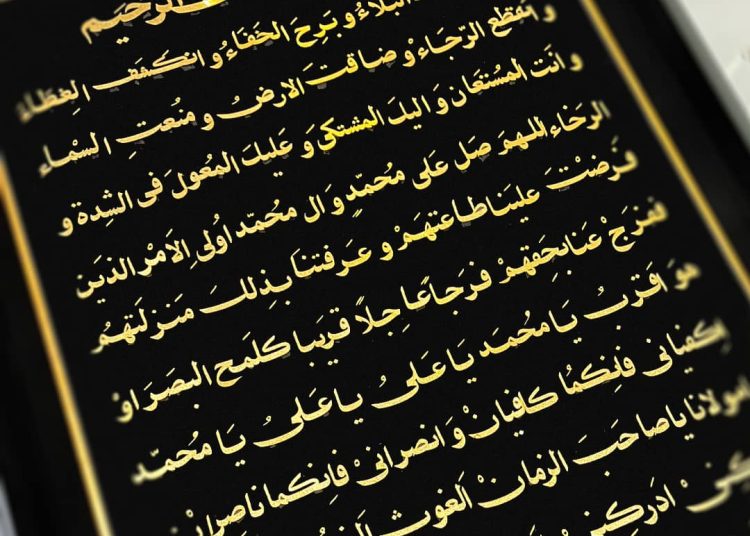 الرحيم
البلاء و برح الخفاء و انكشف الغطاء
و انقطع الرجاء و ضاقت الارض و منعت السماء
و انت المستعان و اليك المشتكى و عليك المعول فى الشدة و
الرخاء اللهم صل على محمد و ال محمد اولى الامر الذين
فرضت علينا طاعتهم و عرفتنا بذلك منزلتهم
ففرج عنا بحقهم فرجا عاجلا قريبا كلمح البصر او
هو اقرب يا محمد يا على يا على يا محمد
اكفيانى فانكما كافيان و انصرانى فانكما ناصران
مولانا يا صاحب الزمان الغوث
ادركنى